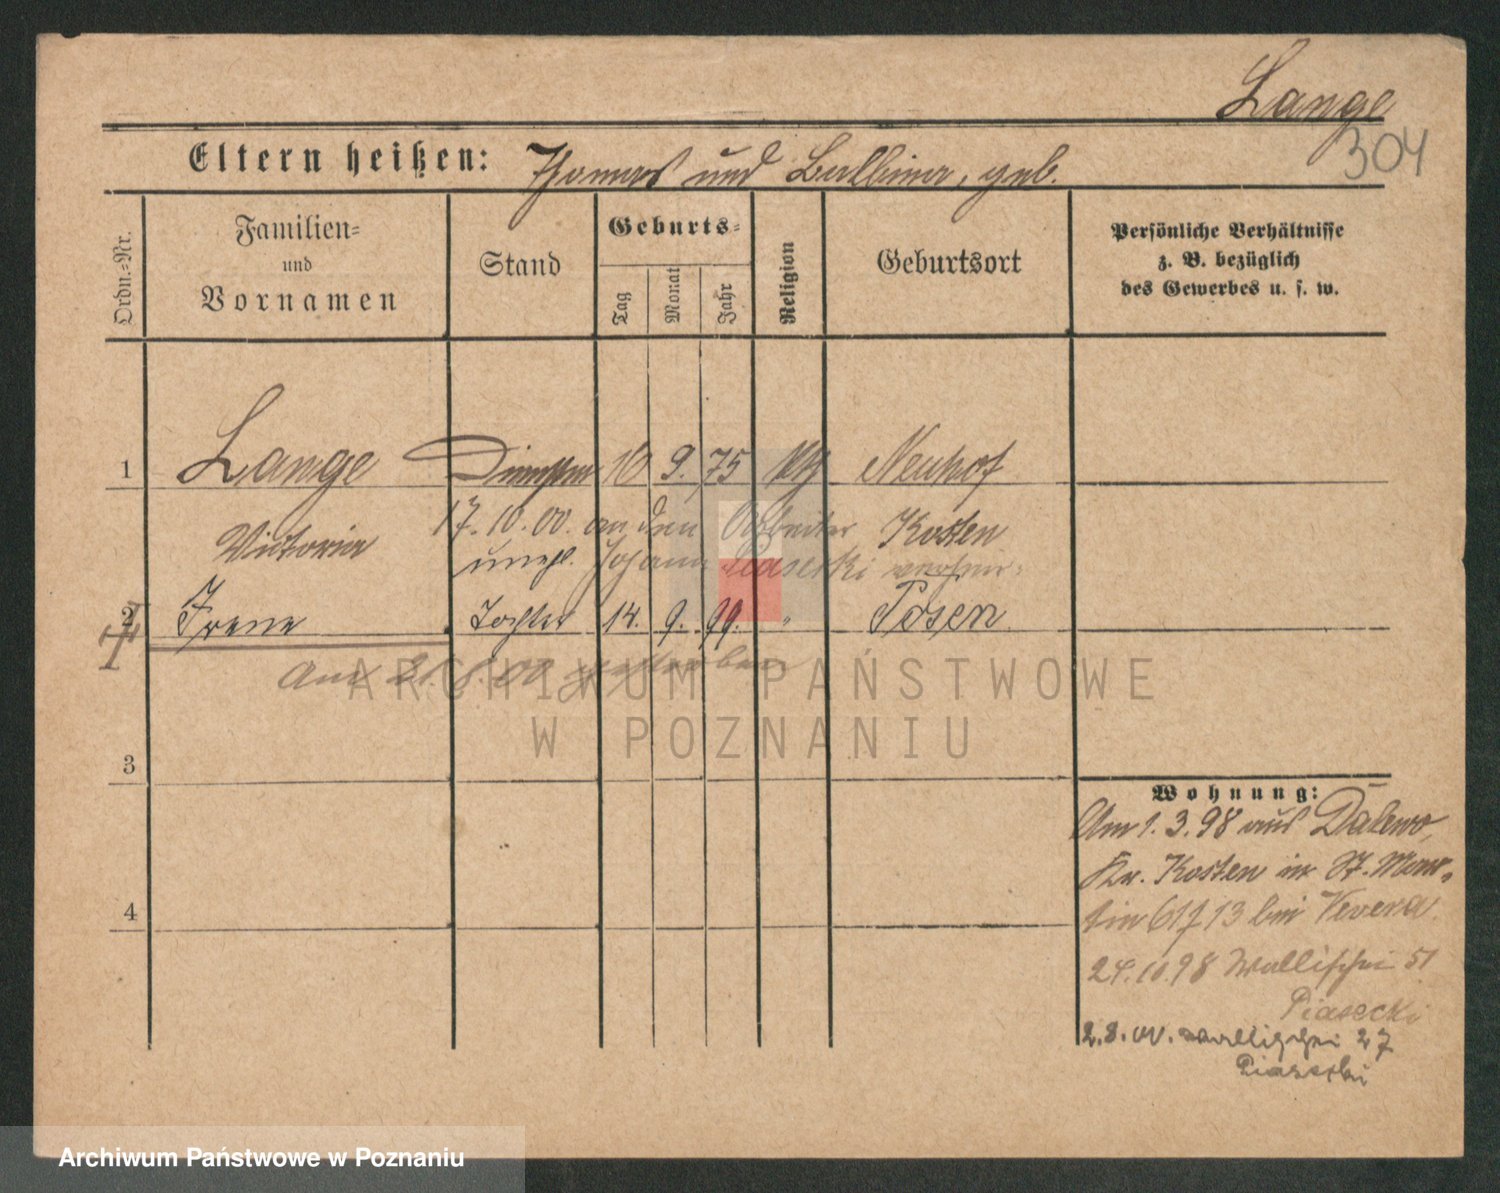 Lange
304
Eltern heißen: Thomas und Balbina, geb.
Ordn.-Nr.
Familien-
und
Vornamen
Stand
Geburts-
Tag
Monat
Jahr
Religion
Geburtsort
Persönliche Verhältnisse
z. B. bezüglich
des Gewerbes u. s. w.
1 Lange 9. 75 kth Neuhof
17.10.00. an den Arbeiter Kosten
Victoria unehl. Johann Piasecki
2 Irene Tochter 14. 9. 99. " Posen
Am 21.8.00 gestorben
ARCHIWUM PAŃSTWOWE
W POZNANIU
3
4
Wohnung:
Am 1.3.98 aus Dalewo,
Kr. Kosten in St. Mar-
tin 61 bei Vevera
24.10.98 Wallischei 51
Piasecki
2.8.00. Wallischei 27
Piasecki
Archiwum Państwowe w Poznaniu